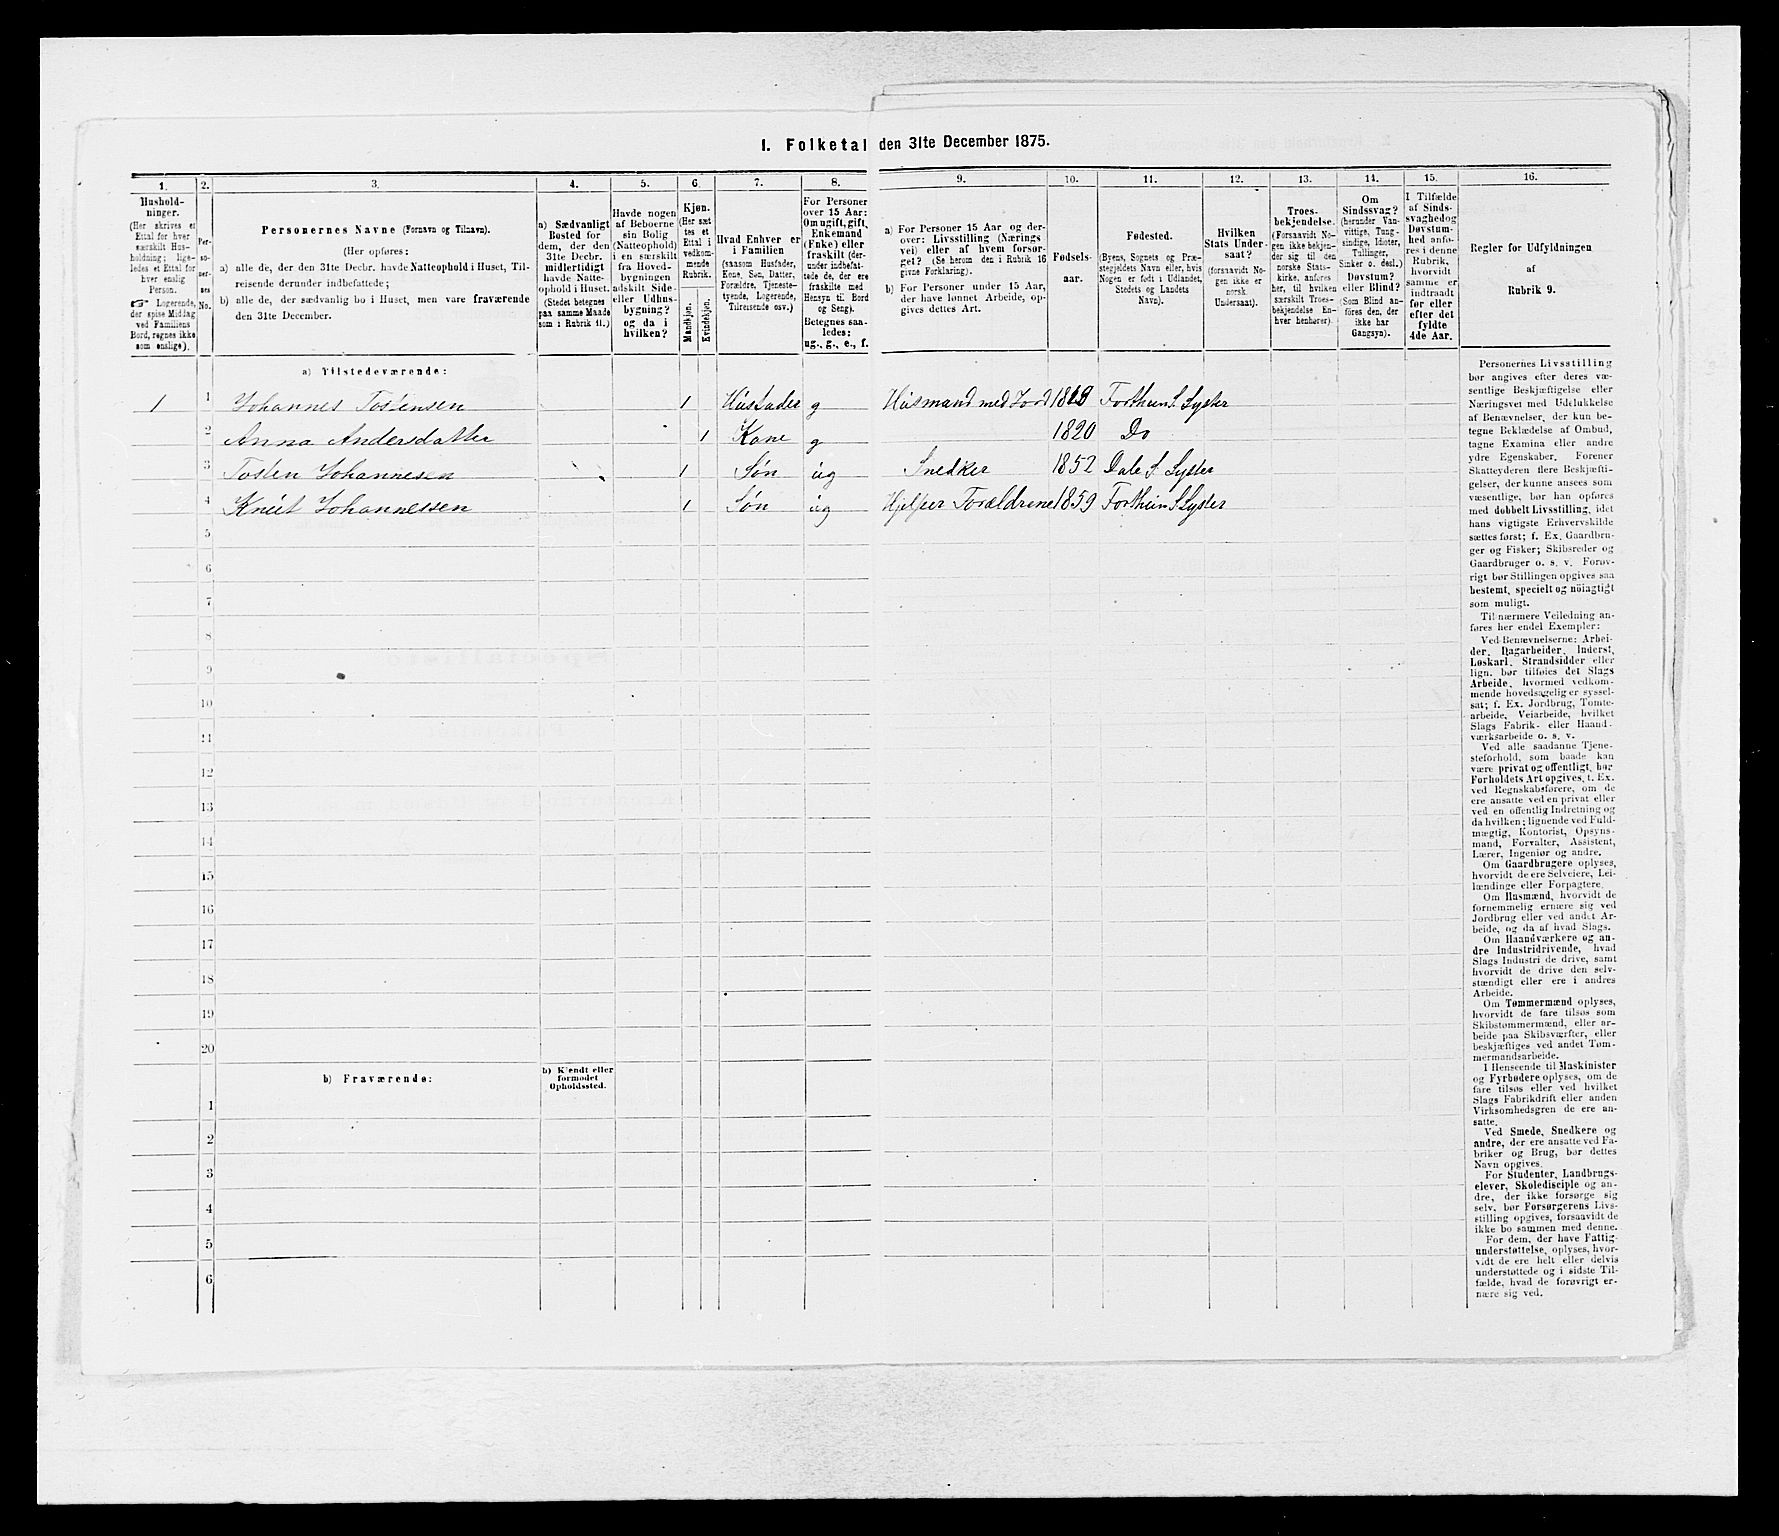 I. Folketal den 31te December 1875.
1. 2. 3. 4. 5. 6. 7. 8. 9. 10. 11. 12. 13. 14. 15. 16.
Hushold-
ninger.
(Her skrives et
Ettal for hver
særskilt Hus-
holdning; lige-
ledes et Ettal for
hver enslig
Person.
☞ Logerende,
der spise Middag
ved Familiens
Bord, regnes ikke
som enslige).
Per-
so-
ner-
nes
No.
Personernes Navne (Fornavn og Tilnavn).
(Her opføres:
a) alle de, der den 31te Decbr. havde Natteophold i Huset, Til-
reisende derunder indbefattede;
b) alle de, der sædvanlig bo i Huset, men vare fraværende
den 31te December.
a) Sædvanligt
Bosted for
dem, der den
31te Decbr.
midlertidigt
havde Natte-
ophold i Huset.
(Stedet betegnes
paa samme Maade
som i Rubrik 11.)
Havde nogen
af Beboerne
sin Bolig
(Natteophold)
i en særskilt
fra Hoved-
bygningen
adskilt Side-
eller Udhus-
bygning?
og da i
hvilken?
Kjøn.
(Her sæt-
tes et
Ettal i
vedkom-
mende
Rubrik.
Mandkjøn.
Kvindekjøn.
Hvad Enhver er
i Familien
(saasom Husfader,
Kone, Søn, Datter,
Forældre, Tjeneste-
tyende, Logerende,
Tilreisende osv.)
For Personer
over 15 Aar:
Om ugift, gift,
Enkemand
(Enke) eller
fraskilt (der-
under indbefat-
tede de, der ere
fraskilte med
Hensyn til Bord
og Seng).
Betegnes saa-
ledes:
ug., g., e., f.
a) For Personer 15 Aar og der-
over: Livsstilling (Nærings-
vei) eller af hvem forsør-
get? (Se herom den i Rubrik 16
givne Forklaring).
b) For Personer under 15 Aar,
der have lønnet Arbeide, op-
gives dettes Art.
Fødsels-
aar.
Fødested.
(Byens, Sognets og Præ-
stegjeldets Navn eller, hvis
Nogen er født i Udlandet,
Stedets og Landets
Navn).
Hvilken
Stats Under-
saat?
(forsaavidt No-
gen ikke er
norsk
Undersaat).
Troes-
bekjendelse.
(Forsaavidt No-
gen ikke bekjen-
der sig til den
norske Stats-
kirke, anføres
her, til hvilken
særskilt Troes-
bekjendelse En-
hver henhører).
Om
Sindssvag?
(herunder Van-
vittige, Tung-
sindige, Idioter,
Tullinger,
Sinker o. desl.)
Døvstum?
eller Blind?
(Som Blind an-
føres den, der
ikke har
Gangsyn).
I Tilfælde
af Sinds-
svaghed og
Døvstum-
hed anfø-
res i denne
Rubrik,
hvorvidt
samme er
indtraadt
før eller
efter det
fyldte
4de Aar.
Regler for Udfyldningen
af
Rubrik 9.
a) Tilstedeværende:
1 1 Johannes Tostensen 1 Husfader g Husmand med Jord Forthun S. Lyster
2 Anna Andersdatter 1 Kone g 1820 Do
3 Tosten Johannesen 1 Søn ug Snedker 1852 Dale S. Lyster
4 Knut Johannessen 1 Søn ug Hjelper Forældrene 1859 Forthun S Lyster
5
6
7
8
9
10
11
12
13
14
15
16
17
18
19
20
b) Fraværende:
b) Kjendt eller
formodet
Opholdssted.
1
2
3
4
5
6
Personernes Livsstilling
bør angives efter deres væ-
sentlige Beskjæftigelse eller
Næringsvei med Udelukkelse
af Benævnelser, der kun be-
tegne Beklædelse af Ombud,
tagne Examina eller andre
ydre Egenskaber. Forener
Skatteyderen flere Beskjæfti-
gelser, der kunne ansees som
væsentlige, bør han opføres
med dobbelt Livsstilling, idet
hans vigtigste Erhvervskilde
sættes først; f. Ex. Gaardbru-
ger og Fisker; Skibsreder og
Gaardbruger o. s. v. Forøv-
rigt bør Stillingen opgives saa
bestemt, specielt og nöiagtigt
som muligt.
Til nærmere Veiledning an-
føres her endel Exempler:
Ved Benævnelserne: Arbei-
der, Dagarbeider, Inderst,
Løskarl, Strandsidder eller
lign. bør tilføies det Slags
Arbeide, hvormed vedkom-
mende hovedsagelig er syssel-
sat; f. Ex. Jordbrug, Tomte-
arbeide, Veiarbeide, hvilket
Slags Fabrik- eller Haand-
værksarbeide o. s. v.
Ved alle saadanne Tjene-
steforhold, som baade kan
være privat og offentligt, bør
Forholdets Art opgives, t. Ex.
ved Regnskabsførere, om de
ere ansatte ved en privat eller
ved en offentlig Indretning og
da hvilken; lignende ved Fuld-
mægtig, Kontorist, Opsyns-
mand, Forvalter, Assistent,
Lærer, Ingeniør og andre.
Om Gaardbrugere oplyses,
hvorvidt de ere Selveiere, Lei-
lændinge eller Forpagtere.
Om Husmænd, hvorvidt de
fornemmelig ernære sig ved
Jordbrug eller ved andet Ar-
beide, og da af hvad Slags.
Om Haandværkere og an-
dre Industridrivende, hvad
Slags Industri de drive, samt
hvorvidt de drive den selv-
stændigt eller ere i andres
Arbeide.
Om Tømmermænd oplyses,
hvorvidt de fare tilsøs som
Skibstømmermænd, eller ar-
beide paa Skibsværfter, eller
beskjæftiges ved andet Tøm-
mermandsarbeide.
I Henseende til Maskinister
og Fyrbødere oplyses, om de
fare tilsøs eller ved hvilket
Slags Fabrikdrift eller anden
Virksomhedsgren de ere an-
satte.
Ved Smede, Snedkere og
andre, der ere ansatte ved Fa-
briker og Brug, bør dettes
Navn opgives.
For Studenter, Landbrugs-
elever, Skoledisciple og an-
dre, der ikke forsørge sig
selv, bør Forsørgerens Livs-
stilling opgives, forsaavidt de
ikke bo sammen med denne.
For dem, der have Fattig-
understøttelse, oplyses, hvor-
vidt de ere helt eller delvis
understøttede og i sidste Til-
fælde, hvad de forøvrigt er-
nære sig ved.